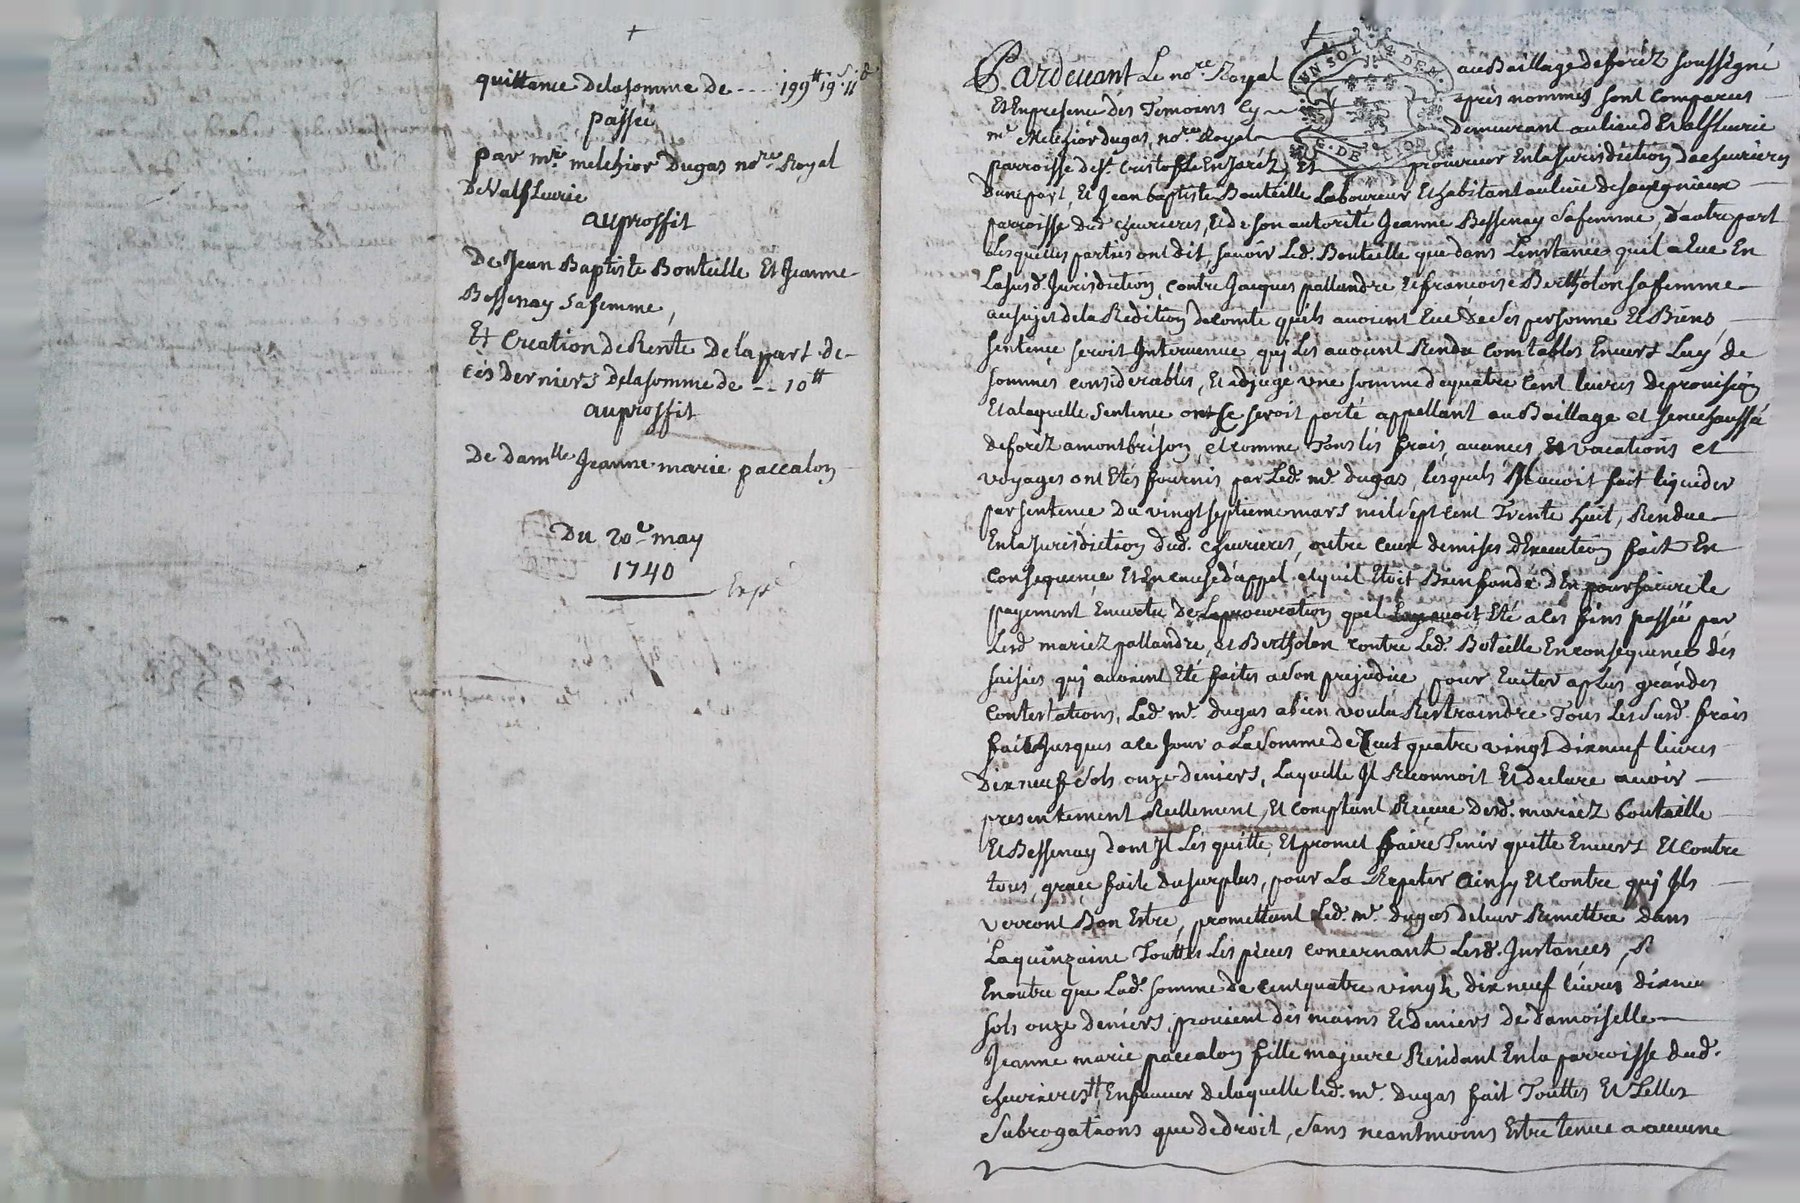 quittance delasomme de ---- 199tt 19s 11d
passée
par mre melchior Dugas nore Royal
De Valfleurie
auproffit
De Jean Baptiste Bouteille Et Jeanne
Bessenay safemme,
Et Creation de Rente Delapart de
cés Derniers delasomme de --- 10tt
auproffit
De damlle Jeanne marie paccalon
Du 20e may
1740
Expé
Pardevant Le nore Royal auBaillage deforéz soussigné
Et Enpresence dés Temoins Cy aprés nommés sont Comparees
me Melchior dugas, nore Royal demeurant aulieud Evalfleurie
parroisse de st Cristofle En Jaréz, Et procureur En la Jurisdiction dechevrieres
Dune part, Et Jean baptiste Bouteille Laboureur Et habitant aulieu desavignieux
parroisse dud chevrieres, Et de son autorité Jeanne Bessenay safemme, Dautre part
Lesquelles partiés ont dit, savoir Led. Bouteille que dans Linstance quil a Eue En
Lasusd. Jurisdiction, contre Jacques pallandre Et francoise Bertholon safemme
ausujet dela Redition decomte quils avoient Eue de ses personne Et Biens,
sentence seroit Intervenue qui Les avoient Rendu Comtables Envers Luy de
sommes considerables, Et adjugé vne somme dequatre Cent livres deprovision
Et alaquelle sentence seroit porté appellant au Baillage et senechaussé
deforéz amontbrison, et comme Tous lés frais, avances, Et vacations et
voyages ont Etés fournis par Led. me dugas, lesquels Il avoit fait liquider
parsentence du vingtseptieme mars mil sept cent Trente huit, Rendue
En la Jurisdiction dud. chevrieres, outre ceux demises dExecution fait En
Consequence Et En cause dappel et quil Etoit Bien fondé dEn poursuivre le
payement, Envertu de Laprocuration quel Luy avoit Eté a ces fins passée par
Lesd mariéz pallandre, et Bertholon contre Led. Boteille En consequence dés
saisies qui avoient Eté faites ason prejudice, pour Eviter aplus grandes
Contestations, Led. me dugas abien voulu Restraindre Tous Les susd. frais
faits Jusques a ce Jour a La somme de Cent quatre vingt dixneuf livres
Dix neuf sols onze deniers, Laquelle Il Reconnoit Et declare avoir
presentement Reellement, Et Comptant Receue desd. mariéz bouteille
Et Bessenay dont Il Lés quitte, Et promet faire Tenir quitte Envers Et Contre
tous, grace faite dusurplus, pour La Repeter Ainsy Et Contre qui Ils
verront Bon Estre, promettant Led. me dugas deleur Remettre dans
Laquinzaine Touttes Les pieces concernant Lesd. Instances,
Enoutre que Lad. somme de Cent quatre vingt dix neuf livres dixneu
sols onze deniers, provient dés mains Et deniers de damoiselle
Jeanne marie paccalon fille majeure Residant En la parroisse dud.
chevrieres Enfaveur delaquelle led. me dugas fait Touttes Et Telles
subrogations que dedroit, sans neantmoins Estre tenue a aucune